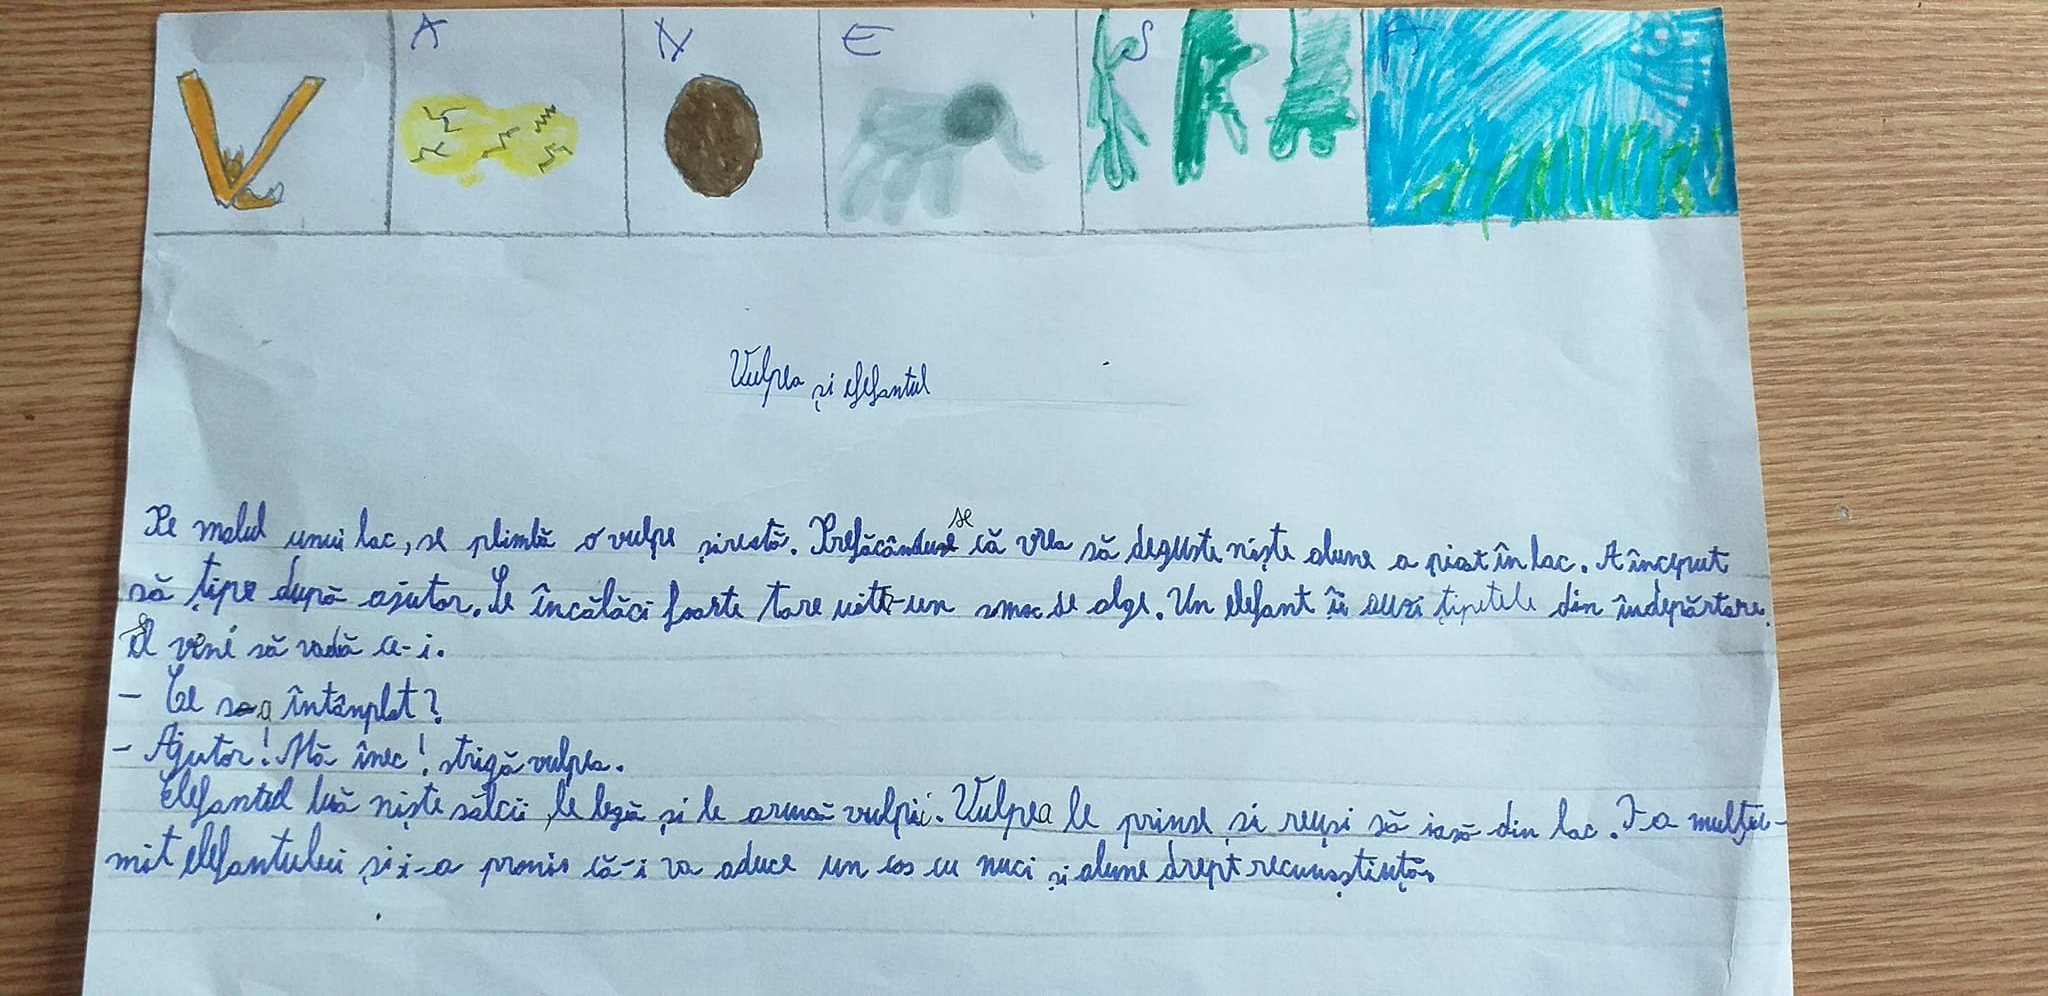 V A N E S A
Vulpea și elefantul
Pe malul unui lac, se plimbă o vulpe șireată. Prefăcându se că vrea să deguste niște alune a picat în lac. A început
să țipe după ajutor. Se încălăci foarte tare într-un smoc de alge. Un elefant îi auzi țipetele din îndepărtare.
El veni să vadă ce-i.
- Ce sa întâmplat?
- Ajutor! Mă înec! strigă vulpea.
Elefantul luă niște sălcii, le legă și le aruncă vulpii. Vulpea le prinse și reuși să iasă din lac. I-a mulțu-
mit elefantului și i-a promis că-i va aduce un cos cu nuci și alune drept recunoștință.